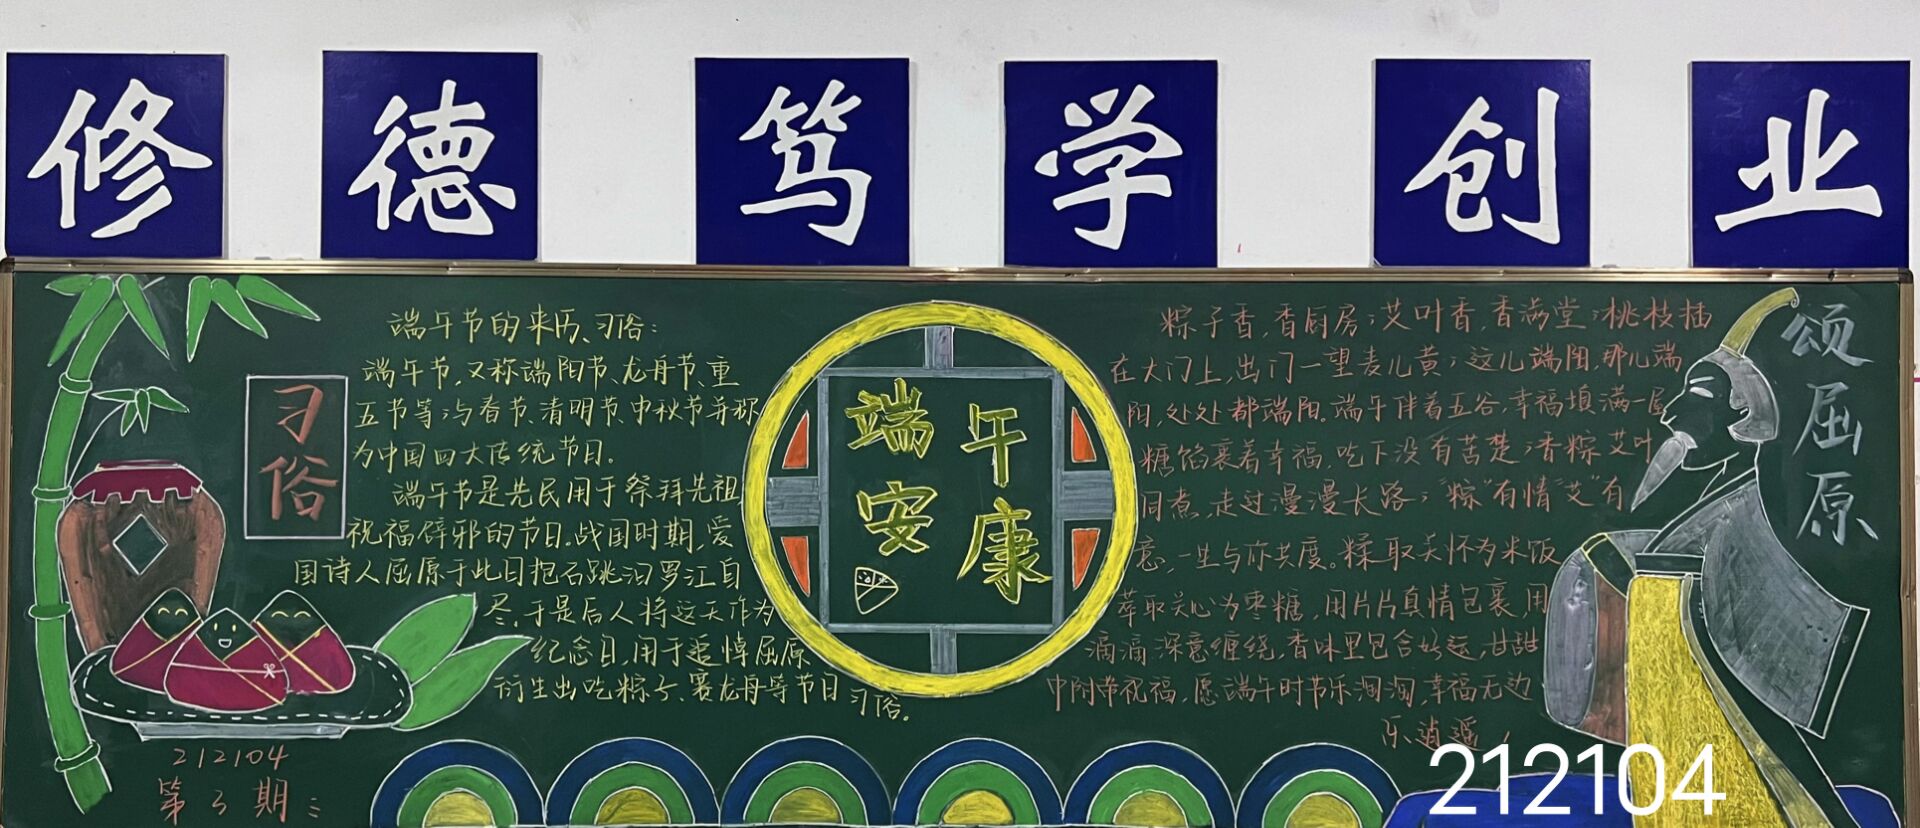 修 德 笃 学 创 业
端午节的来历、习俗:
习俗
端午节,又称端阳节、龙舟节、重
五节等;与春节、清明节、中秋节并称
为中国四大传统节日。
端午节是先民用于祭拜先祖
祝福辟邪的节日。战国时期,爱
国诗人屈原于此日抱石跳汨罗江自
尽,于是后人将这天作为
纪念日,用于追悼屈原
衍生出吃粽子、赛龙舟等节日习俗。
212104
第3期
端午
安康
颂屈原
粽子香,香厨房;艾叶香,香满堂;桃枝插
在大门上,出门一望麦儿黄;这儿端阳,那儿端
阳,处处都端阳。端午伴着五谷,幸福填满一屋
糖馅裹着幸福,吃下没有苦楚;香粽艾叶
同煮,走过漫漫长路;"粽"有情"艾"有
意,一生与你共度。糅取关怀为米饭
萃取关心为枣糖,用片片真情包裹,用
滴滴深意缠绕,香味里包含好运,甘甜
中附带祝福,愿端午时节乐淘淘,幸福无边
乐逍遥!
212104